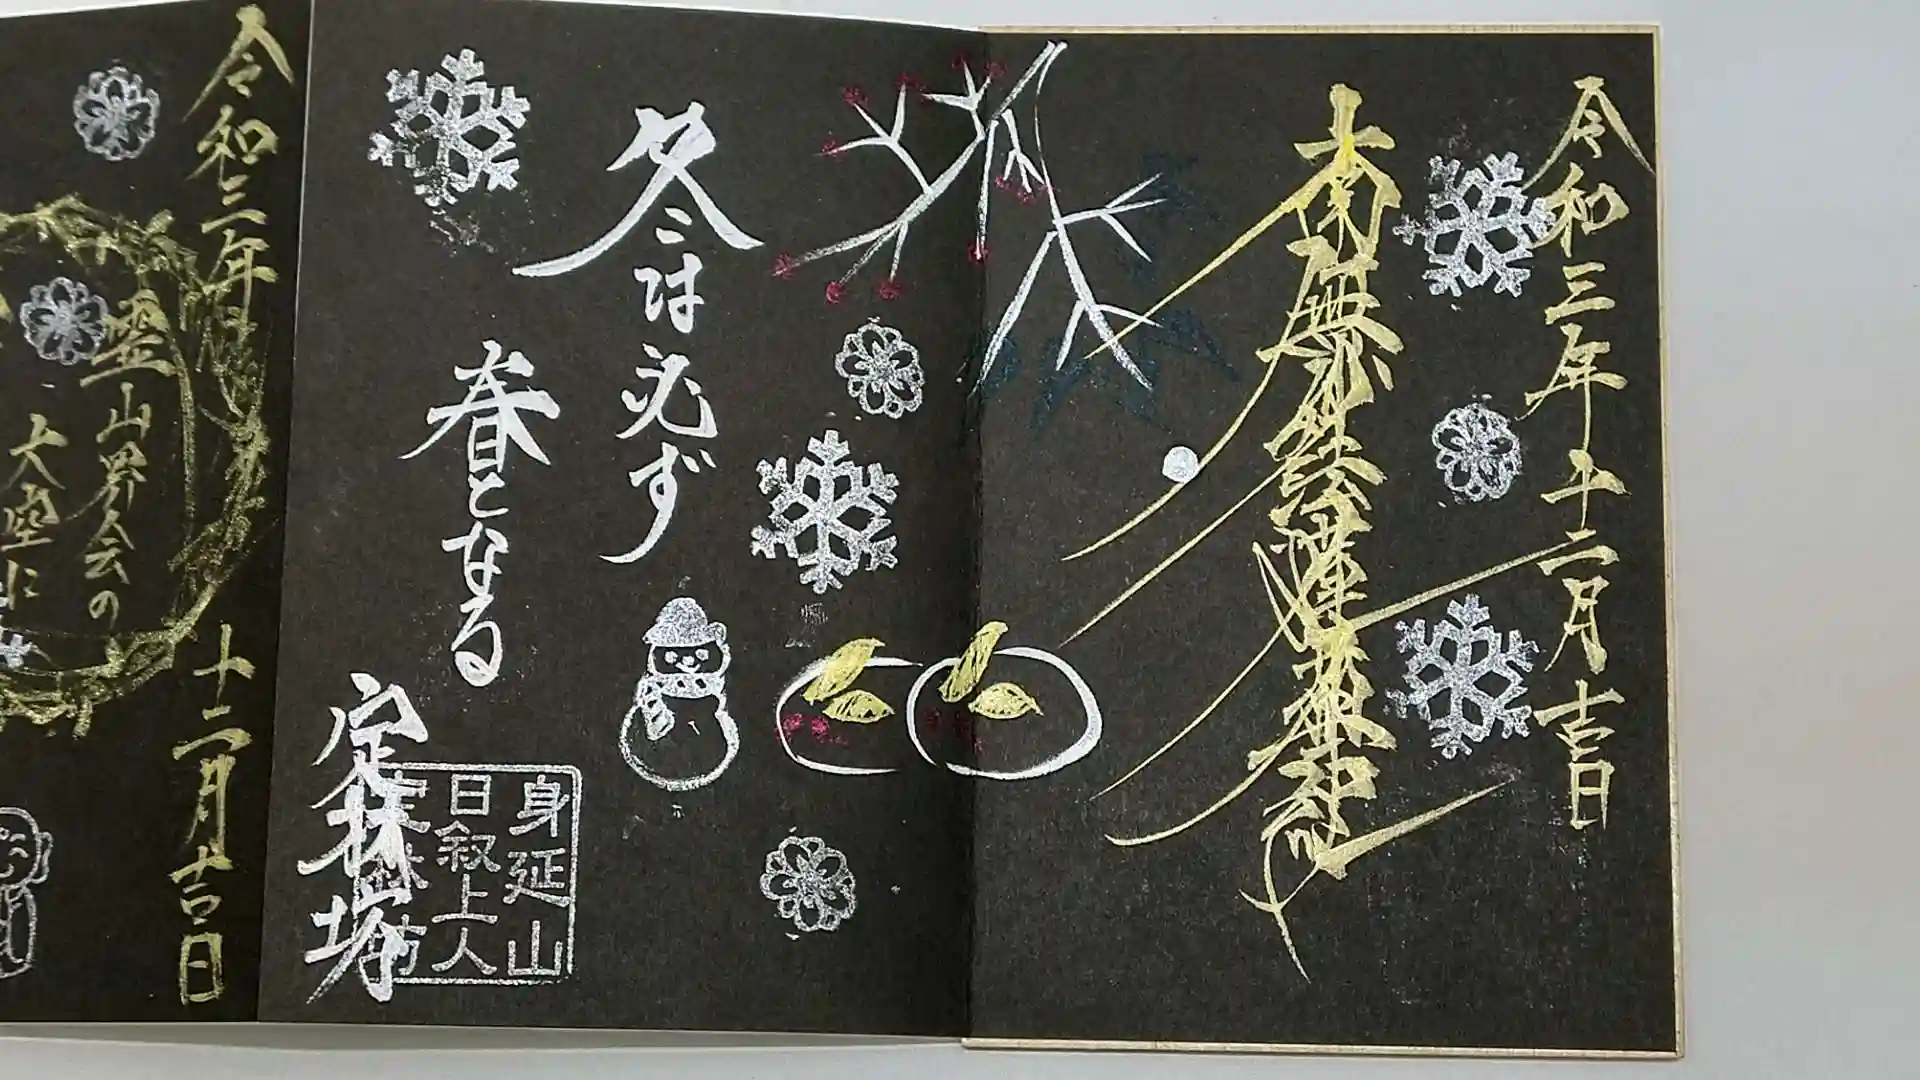 令和三年十二月吉日
南無妙法蓮華経
冬は必ず
春となる
定林坊
身延山
日叙上人
定林坊
令和三年
十二月吉日
霊山界会の
大空に